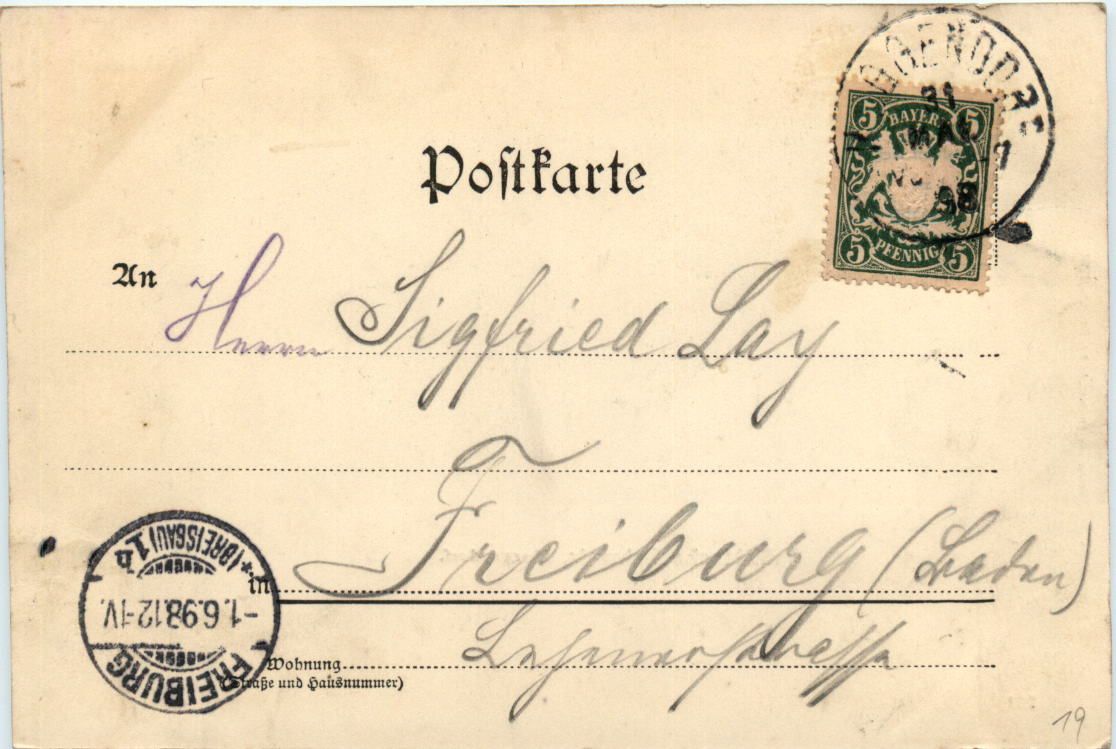 Postkarte
BAYERN
5 5
PFENNIG
5 5
31
MAI
98
An Herrn Sigfried Lay
in Freiburg (Baden)
Wohnung Lehenerstrasse
(Straße und Hausnummer)
FREIBURG
-1.6.98.12-1V.
*(BREISGAU) 1b
19